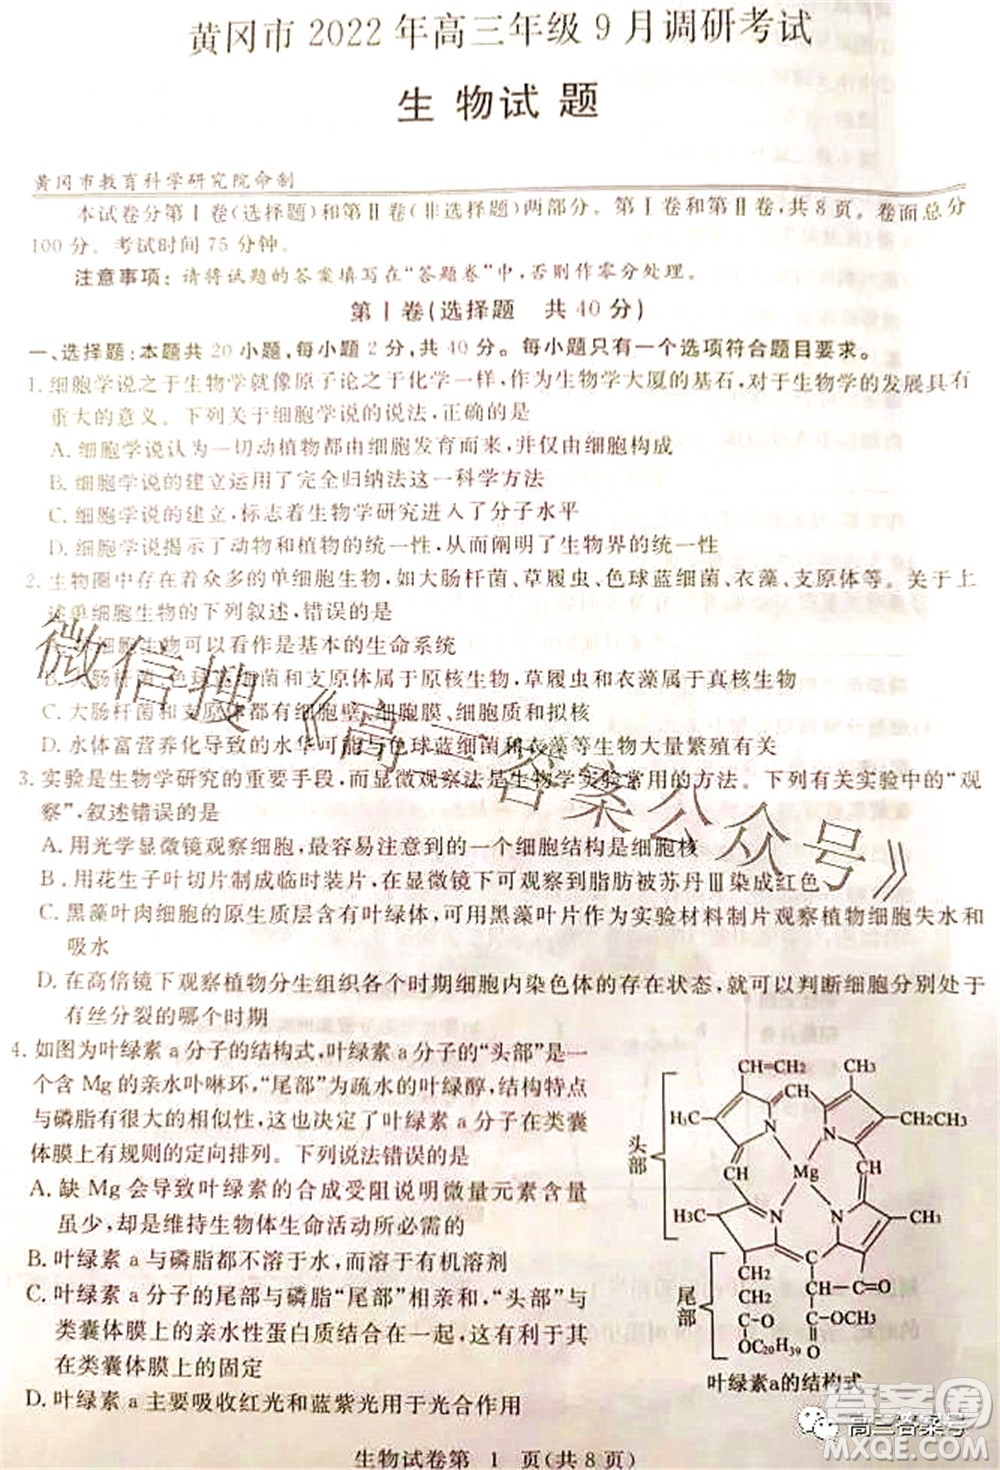 黄冈市 2022 年高三年级 9 月调研考试
生 物 试 题
黄冈市教育科学研究院命制
本试卷分第Ⅰ卷(选择题)和第Ⅱ卷(非选择题)两部分。第Ⅰ卷和第Ⅱ卷,共8页。卷面总分
100 分。考试时间 75 分钟。
注意事项:请将试题的答案填写在“答题卷”中,否则作零分处理。
第Ⅰ卷(选择题 共 40 分)
一、选择题:本题共 20 小题,每小题 2 分,共 40 分。每小题只有一个选项符合题目要求。
1. 细胞学说之于生物学就像原子论之于化学一样,作为生物学大厦的基石,对于生物学的发展具有
重大的意义。下列关于细胞学说的说法,正确的是
A. 细胞学说认为一切动植物都由细胞发育而来,并仅由细胞构成
B. 细胞学说的建立运用了完全归纳法这一科学方法
C. 细胞学说的建立,标志着生物学研究进入了分子水平
D. 细胞学说揭示了动物和植物的统一性,从而阐明了生物界的统一性
2. 生物圈中存在着众多的单细胞生物,如大肠杆菌、草履虫、色球蓝细菌、衣藻、支原体等。关于上
述单细胞生物的下列叙述,错误的是
细胞生物可以看作是基本的生命系统
B. 大肠杆菌、色球蓝细菌和支原体属于原核生物,草履虫和衣藻属于真核生物
C. 大肠杆菌和支原体都有细胞壁、细胞膜、细胞质和拟核
D. 水体富营养化导致的水华可能与色球蓝细菌和衣藻等生物大量繁殖有关
3. 实验是生物学研究的重要手段,而显微观察法是生物学实验常用的方法。下列有关实验中的“观
察”,叙述错误的是
A. 用光学显微镜观察细胞,最容易注意到的一个细胞结构是细胞核
B. 用花生子叶切片制成临时装片,在显微镜下可观察到脂肪被苏丹Ⅲ染成红色
C. 黑藻叶肉细胞的原生质层含有叶绿体,可用黑藻叶片作为实验材料制片观察植物细胞失水和
吸水
D. 在高倍镜下观察植物分生组织各个时期细胞内染色体的存在状态,就可以判断细胞分别处于
有丝分裂的哪个时期
4. 如图为叶绿素 a 分子的结构式,叶绿素 a 分子的“头部”是一
个含 Mg 的亲水卟啉环,“尾部”为疏水的叶绿醇,结构特点
与磷脂有很大的相似性,这也决定了叶绿素 a 分子在类囊
体膜上有规则的定向排列。下列说法错误的是
A. 缺 Mg 会导致叶绿素的合成受阻说明微量元素含量
虽少,却是维持生物体生命活动所必需的
B. 叶绿素 a 与磷脂都不溶于水,而溶于有机溶剂
C. 叶绿素 a 分子的尾部与磷脂“尾部”相亲和,“头部”与
类囊体膜上的亲水性蛋白质结合在一起,这有利于其
在类囊体膜上的固定
D. 叶绿素 a 主要吸收红光和蓝紫光用于光合作用
头部
尾部
CH=CH₂
CH₃
H₃C
CH
CH₂CH₃
N
N
Mg
CH
CH
N
N
H₃C
CH₃
CH₂
CH₂
C=O
C=O
OCH₃
OC₂₀H₃₉
叶绿素a的结构式
生物试卷第 1 页(共 8 页)
微信搜《高三答案公众号》
高三答案号
答案圈
MXQE.COM